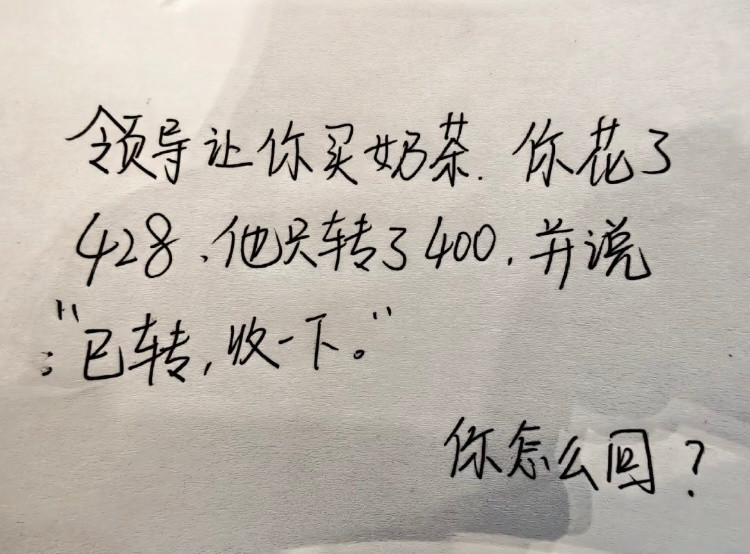 领导让你买奶茶.你花了
428、他只转了400,并说
:"已转,收一下。"
你怎么回?